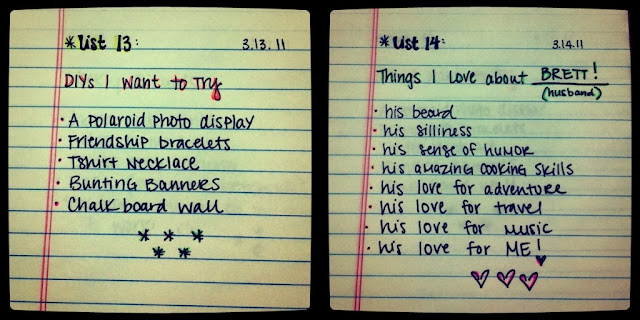 *List 13: 3.13.11
DIYs I Want to Try
• A Polaroid photo display
• Friendship bracelets
• Tshirt Necklace
• Bunting Banners
• Chalkboard wall
* * *
* *
*List 14: 3.14.11
Things I Love about BRETT!
(husband)
• his beard
• his silliness
• his sense of humor
• his amazing cooking skills
• his love for adventure
• his love for travel
• his love for music
• his love for ME!